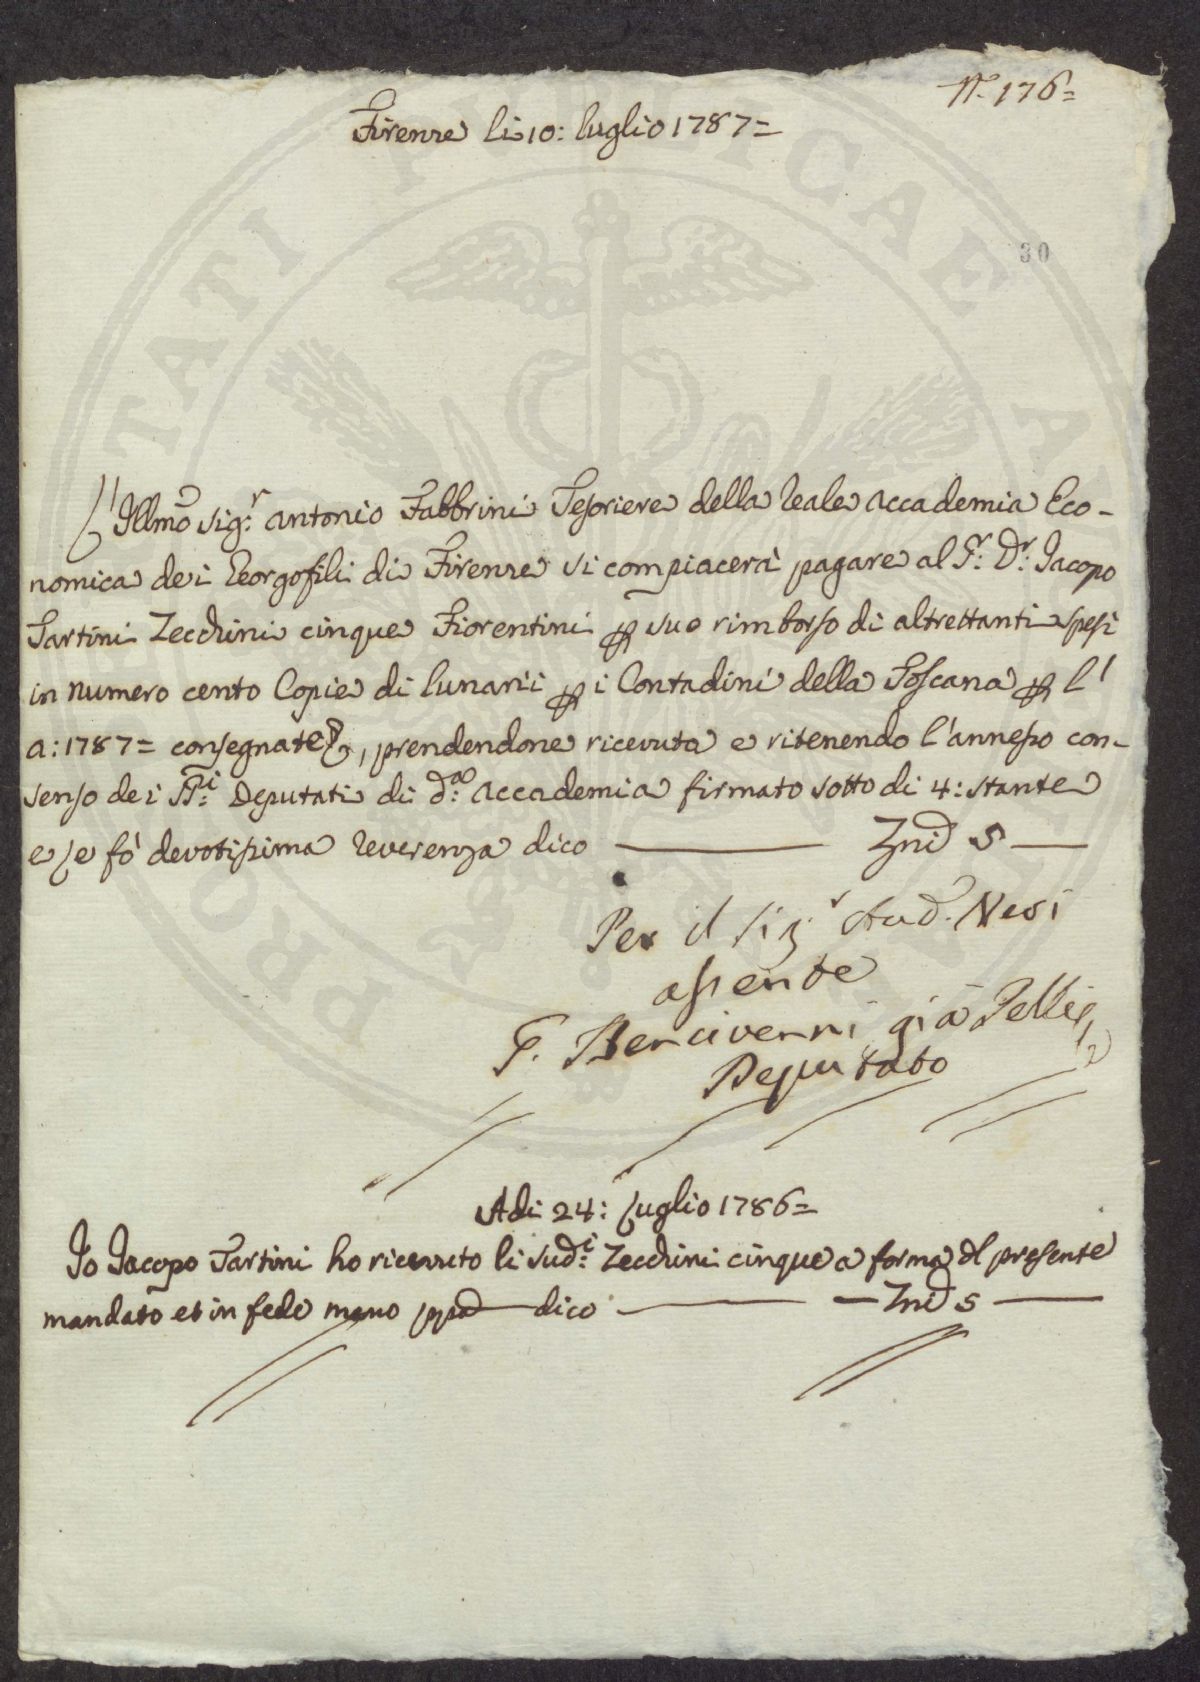 N.° 176=
Firenze li 10: luglio 1787=
30
Illmo Sig.r Antonio Fabbrini Tesoriere della Reale Accademia Eco-
nomica dei Georgofili di Firenze si compiacerà pagare al S.r D.r Jacopo
Tartini Zecchini cinque Fiorentini p suo rimborso di altrettanti spesi
in numero cento Copie di lunarii p i Contadini della Toscana p l'
a: 1787= consegnate, prendendone ricevuta e ritenendo l'annesso con-
senso dei SS.ri Deputati di d.a Accademia firmato sotto di 4: stante
e le fò devotissima reverenza dico — Zni 5 —
Per il Sig.r Aud. Nesi
assente
G. Bencivenni già Pelli
Deputato
Adi 24: Luglio 1786=
Io Jacopo Tartini ho ricevuto li sud.i Zecchini cinque a forma del presente
mandato et in fede mano ppa dico — Zni 5 —
PUBLICAE